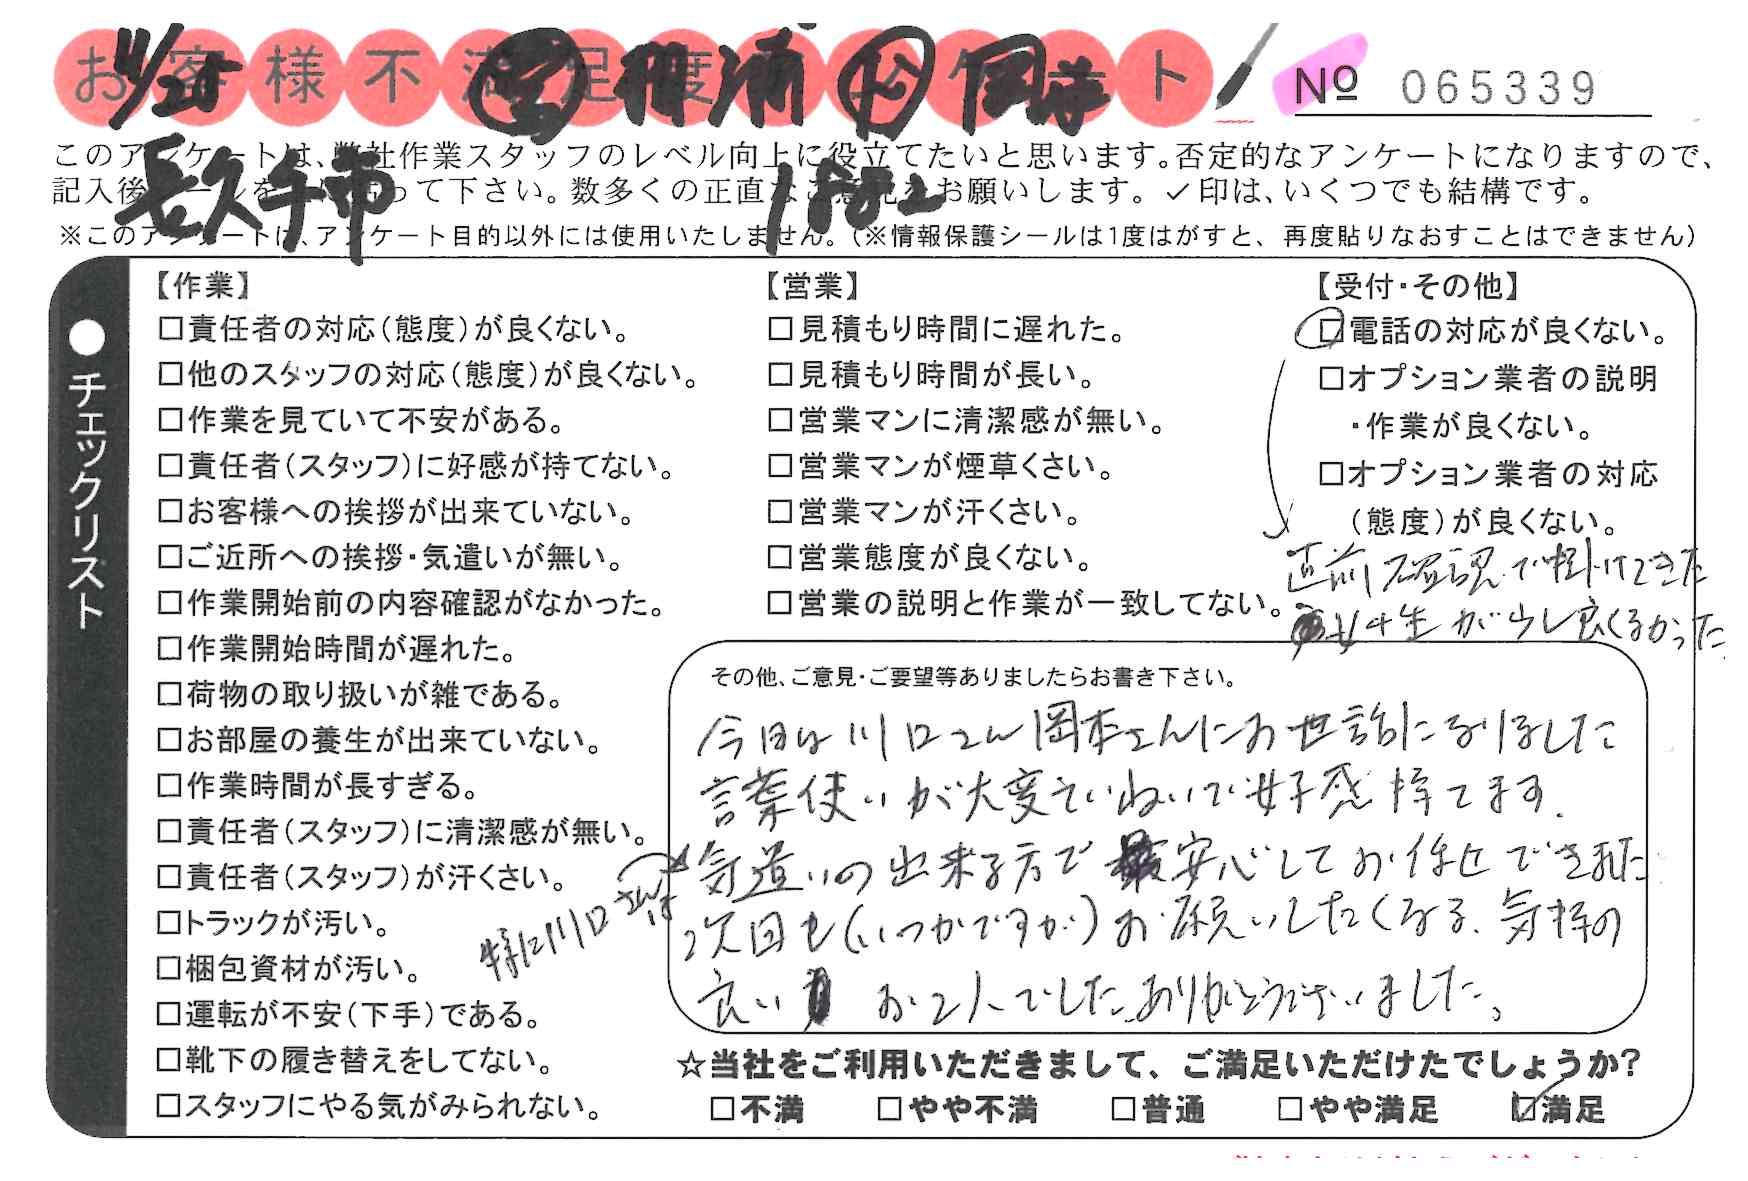 お客様不満足度アンケート
No 065339
11/25
長久手市
このアンケートは、弊社作業スタッフのレベル向上に役立てたいと思います。否定的なアンケートになりますので、
記入後シールを貼って下さい。数多くの正直なご意見をお願いします。✓印は、いくつでも結構です。
※このアンケートは、アンケート目的以外には使用いたしません。(※情報保護シールは1度はがすと、再度貼りなおすことはできません)
●チェックリスト
【作業】
□責任者の対応(態度)が良くない。
□他のスタッフの対応(態度)が良くない。
□作業を見ていて不安がある。
□責任者(スタッフ)に好感が持てない。
□お客様への挨拶が出来ていない。
□ご近所への挨拶・気遣いが無い。
□作業開始前の内容確認がなかった。
□作業開始時間が遅れた。
□荷物の取り扱いが雑である。
□お部屋の養生が出来ていない。
□作業時間が長すぎる。
□責任者(スタッフ)に清潔感が無い。
□責任者(スタッフ)が汗くさい。
□トラックが汚い。
□梱包資材が汚い。
□運転が不安(下手)である。
□靴下の履き替えをしてない。
□スタッフにやる気がみられない。
【営業】
□見積もり時間に遅れた。
□見積もり時間が長い。
□営業マンに清潔感が無い。
□営業マンが煙草くさい。
□営業マンが汗くさい。
□営業態度が良くない。
□営業の説明と作業が一致してない。
【受付・その他】
□電話の対応が良くない。
□オプション業者の説明
・作業が良くない。
□オプション業者の対応
(態度)が良くない。
直前確認で掛けてきた
女性が少し良くなかった
その他、ご意見・ご要望等ありましたらお書き下さい。
今日は川口さん岡本さんにお世話になりました
言葉使いが大変ていねいで好感持てます。
特に川口さんは
気遣いの出来る方で安心してお任せできました
次回も(いつかですが)お願いしたくなる、気持の
良いお2人でした。ありがとうございました。
☆当社をご利用いただきまして、ご満足いただけたでしょうか?
□不満 □やや不満 □普通 □やや満足 ☑満足